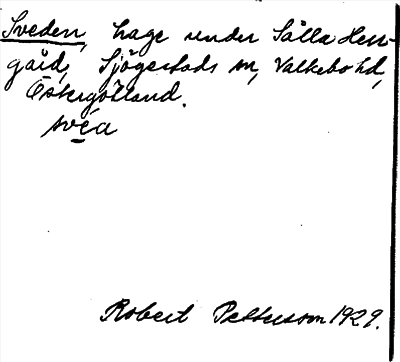 Sveden, hage under Sälla Herr-
gård, Sjögestads sn, Valkebo hd,
Östergötland.
svéa
Robert Pettersson 1929.